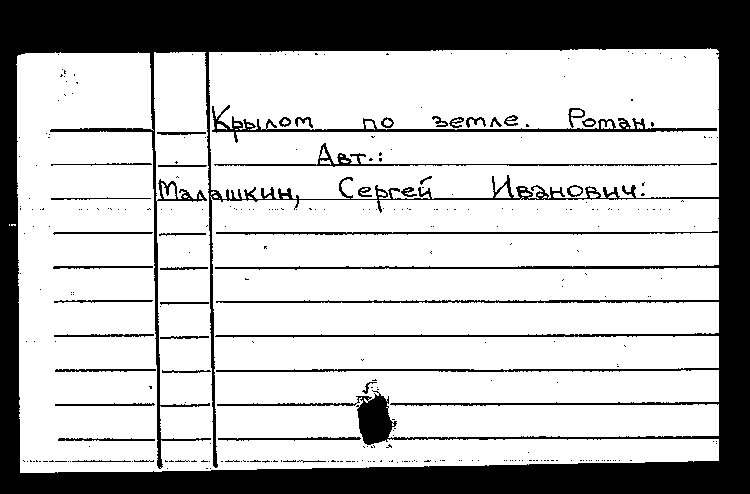 Крылом по земле. Роман.
Авт.:
Малашкин, Сергей Иванович: